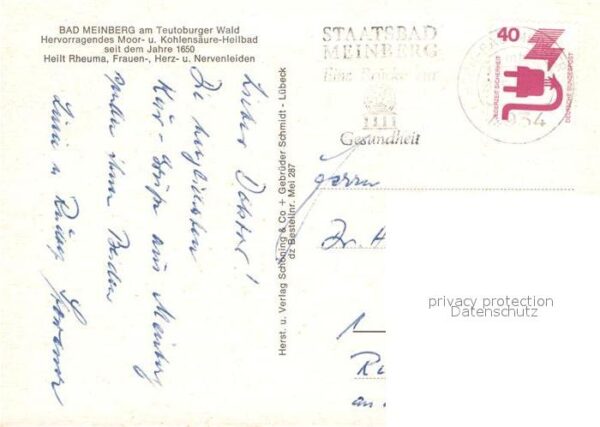 BAD MEINBERG am Teutoburger Wald
Hervorragendes Moor- u. Kohlensäure-Heilbad
seit dem Jahre 1650
Heilt Rheuma, Frauen-, Herz- u. Nervenleiden
Lieber Doktor!
Die herzlichsten
Kur-Grüße aus Meinberg
senden Ihnen Beiden
Herst. u. Verlag Schöning & Co + Gebrüder Schmidt - Lübeck
dz Bestellnr. Mei 287
STAATSBAD
MEINBERG
Eine Brücke zur
Gesundheit
40
JEDERZEIT SICHERHEIT
DEUTSCHE BUNDESPOST
4934
Herrn
Dr. H
1
an
privacy protection
Datenschutz